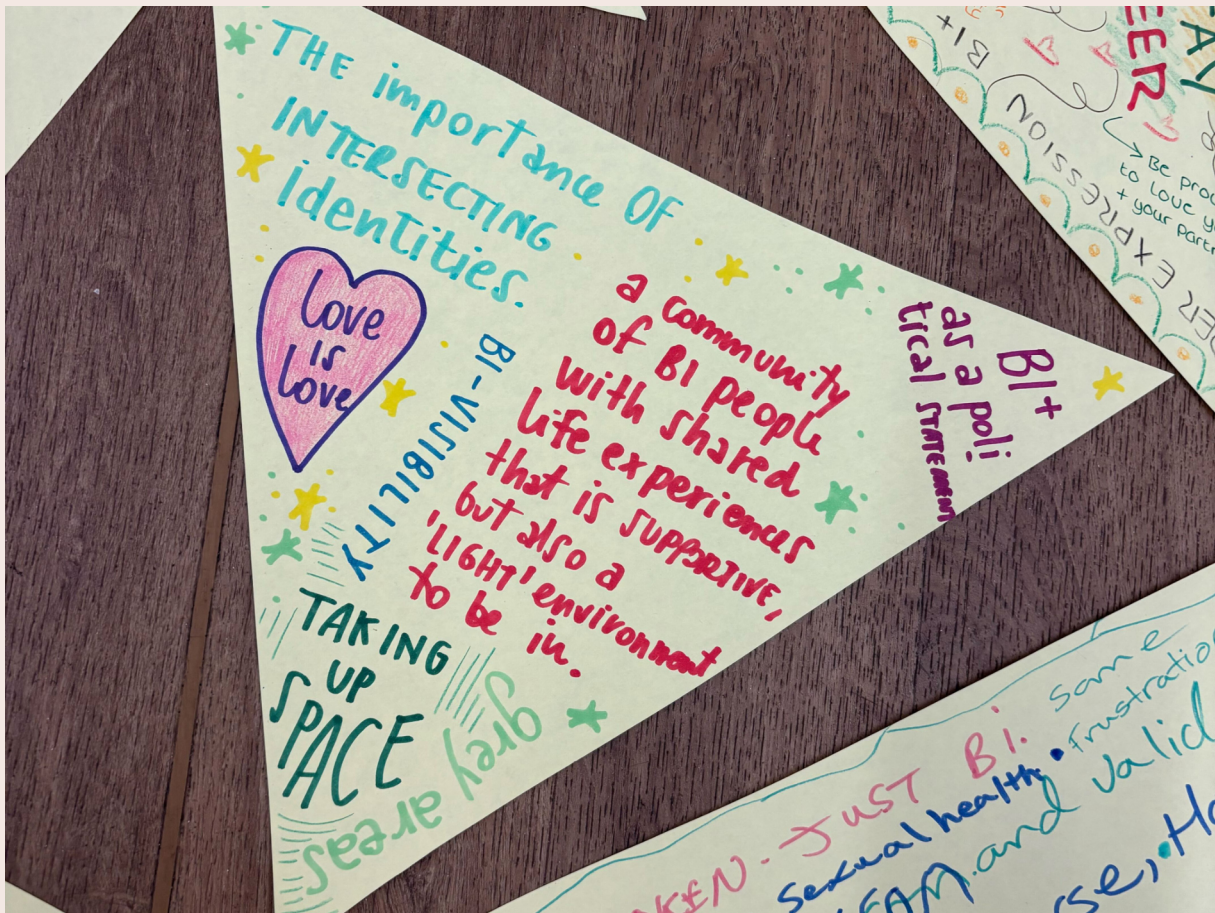 THE importance OF
INTERSECTING
identities.
Love
is
love
BI-VISIBILITY
a community
OF BI people
with shared
life experiences
that is SUPPORTIVE,
but also a
'LIGHT' environment
to be in.
BI+
as a poli
trical STATEMENT
TAKING
UP
SPACE
grey areas
BI+
EER
AY
EXPRESSION
Be
to love
+ your
JUST BI.
Same
sexual health.
and valid